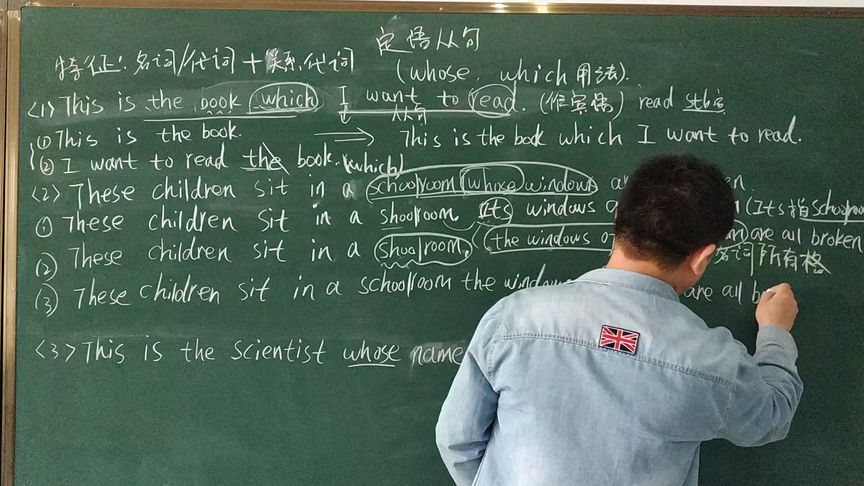 定语从句
特征：名词/代词 + 关系代词
(whose, which 用法).
<1> This is the book which I want to read. (作宾语) read sth
从句
① This is the book. ⟹ This is the book which I want to read.
② I want to read the book. (which)
<2> These children sit in a schoolroom whose windows
① These children sit in a shoolroom. Its windows (Its指schoolroom
② These children sit in a shoolroom, (the windows of are all broken
名词所有格
③ These children sit in a schoolroom the windows are all
<3> This is the scientist whose name